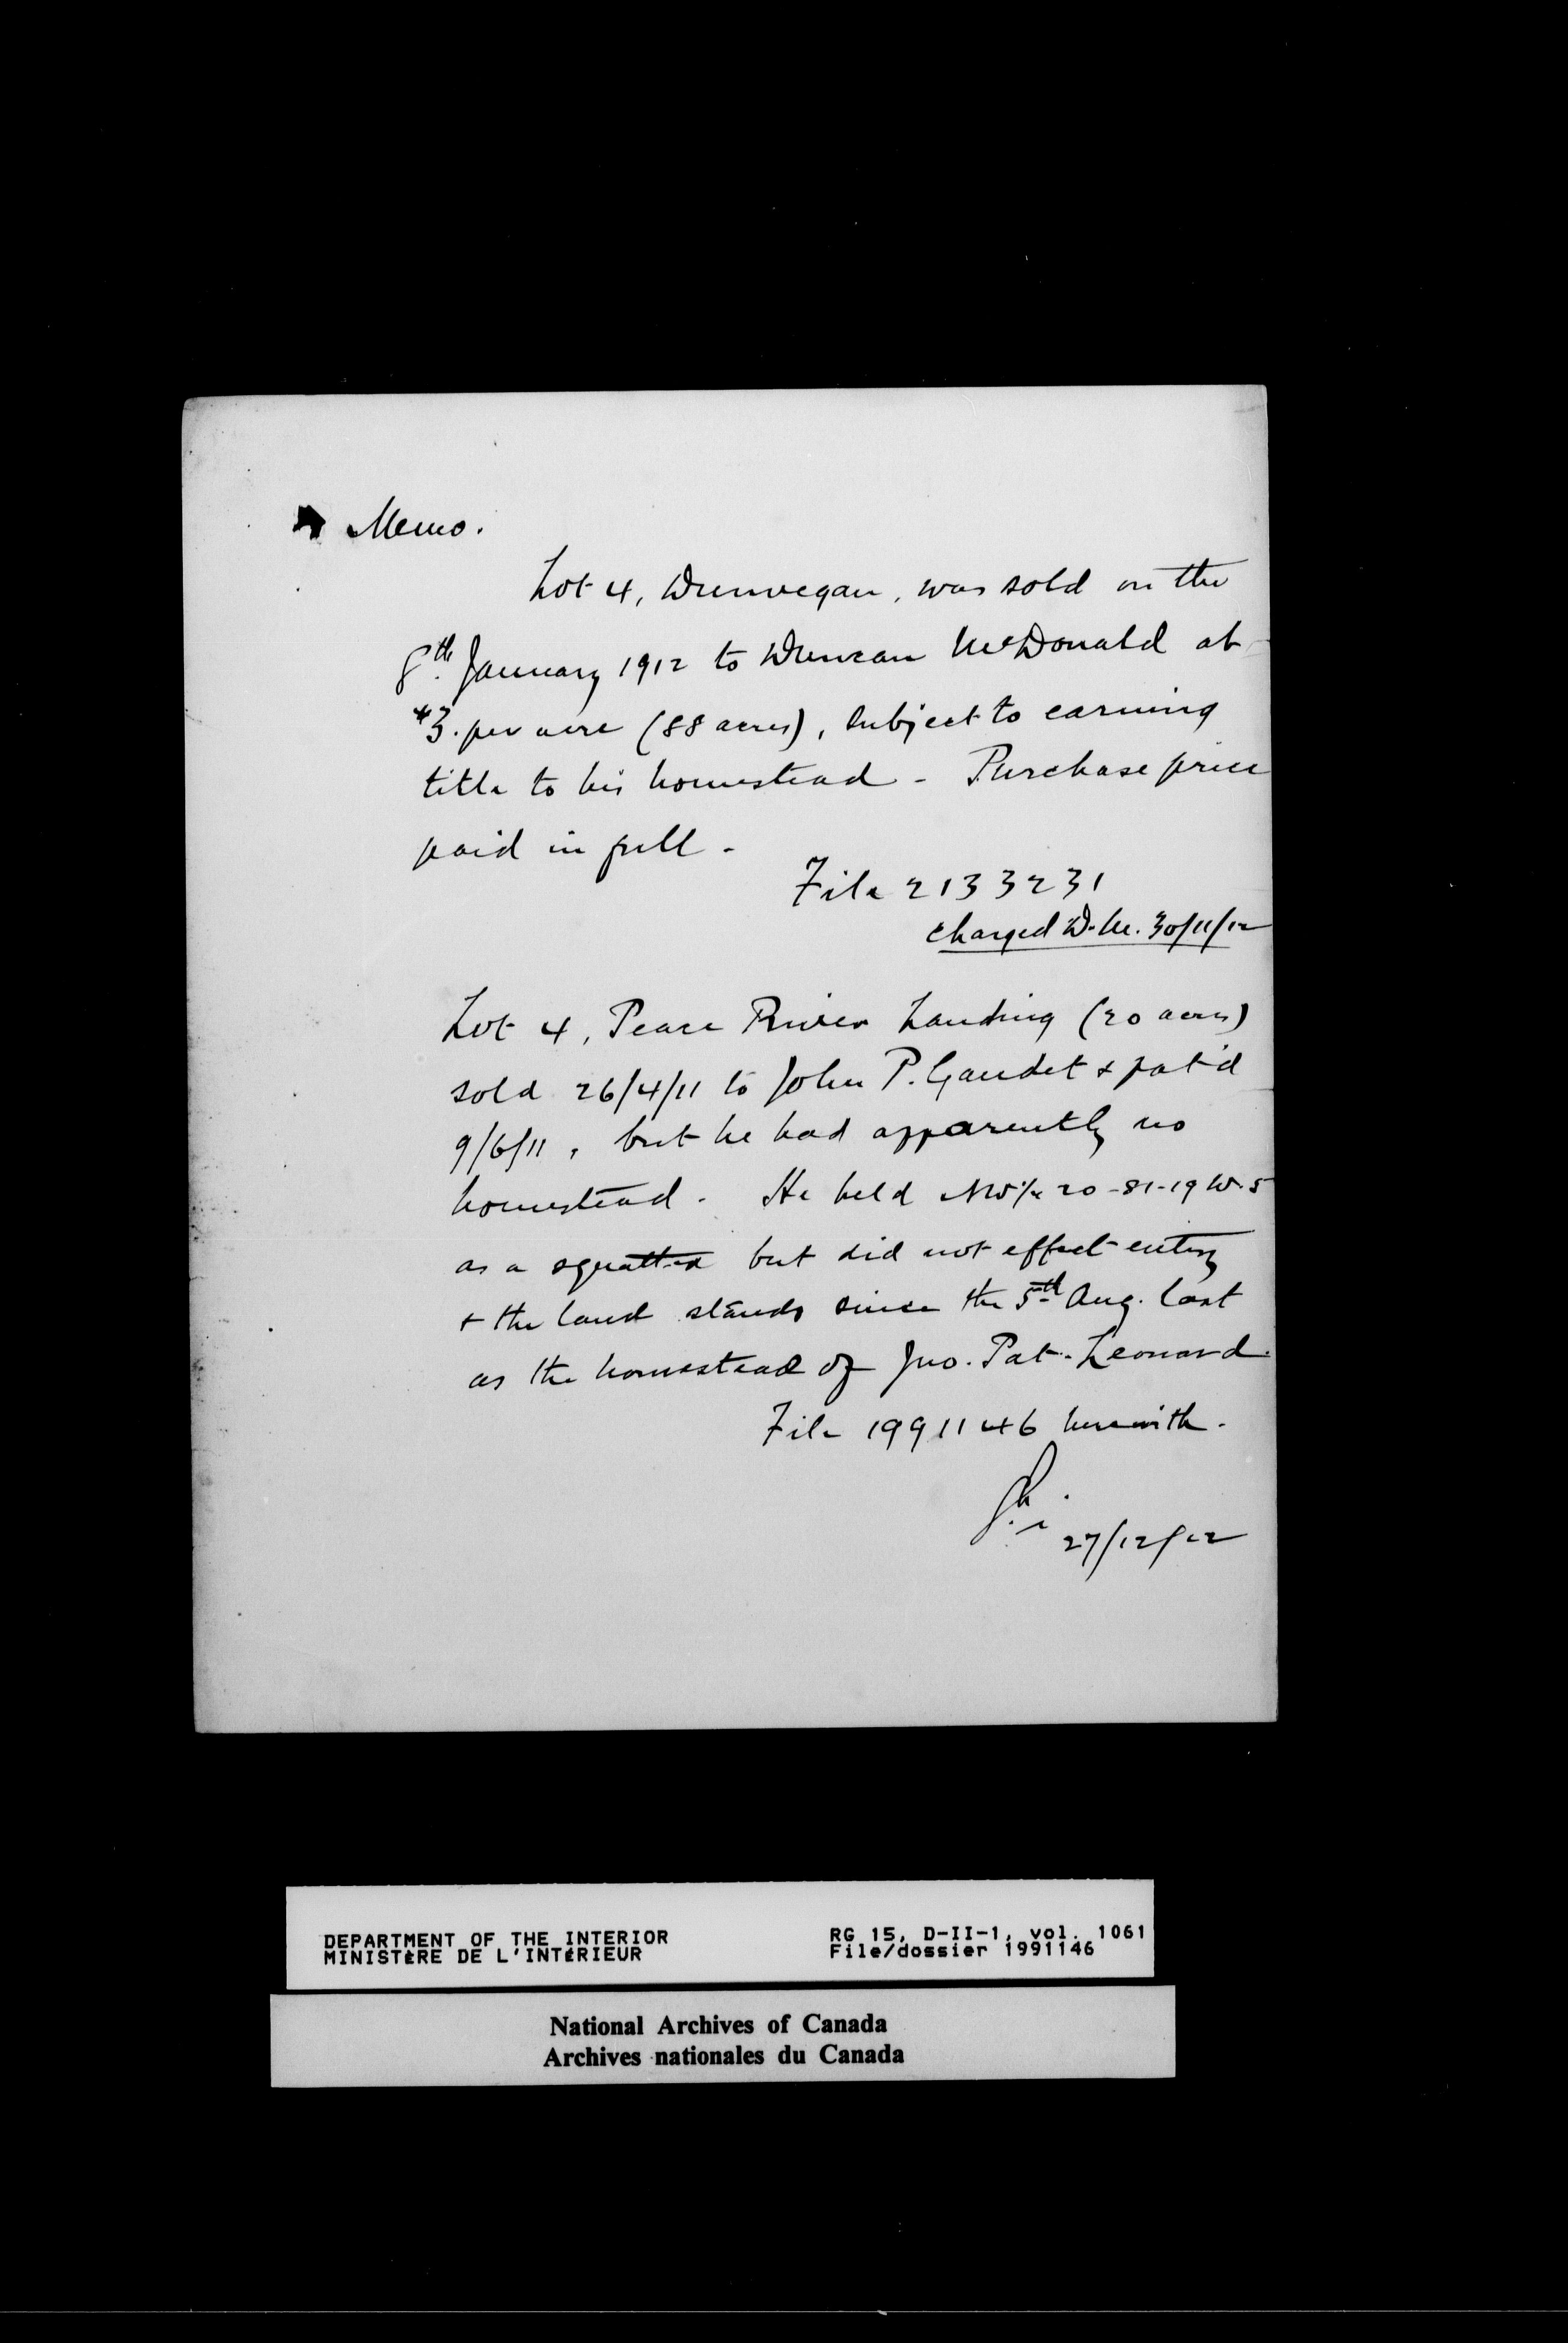 Memo.
Lot 4, Dunvegan, was sold on the
8th. January 1912 to Duncan McDonald at
$3. per acre (88 acres), subject to earning
title to his homestead - Purchase price
paid in full -
File 2133231
charged D.M. 30/11/12
Lot 4, Peace River Landing (20 acres)
sold 26/4/11 to John P. Gaudet & pat'd
9/6/11, but he had apparently no
homestead. He held NW¼ 20-81-19 W.5
as a squatter but did not effect entry
& the land stands since the 5th Aug. last
as the homestead of Jno. Pat. Leonard.
File 1991146 herewith.
27/12/12
DEPARTMENT OF THE INTERIOR
MINISTÈRE DE L'INTÉRIEUR
RG 15, D-II-1, vol. 1061
File/dossier 1991146
National Archives of Canada
Archives nationales du Canada